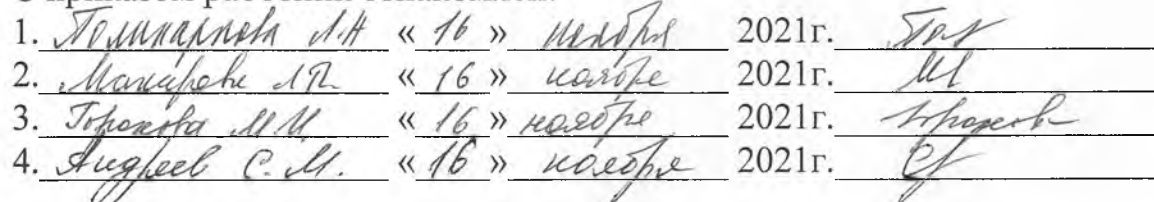 С приказом работники ознакомлен
1. Поликарпова Л.Н « 16 » ноября 2021г.
2. Макарова Л.П. « 16 » ноября 2021г.
3. Горохова М И « 16 » ноября 2021г. Горохова
4. Андреев С.М. « 16 » ноября 2021г.